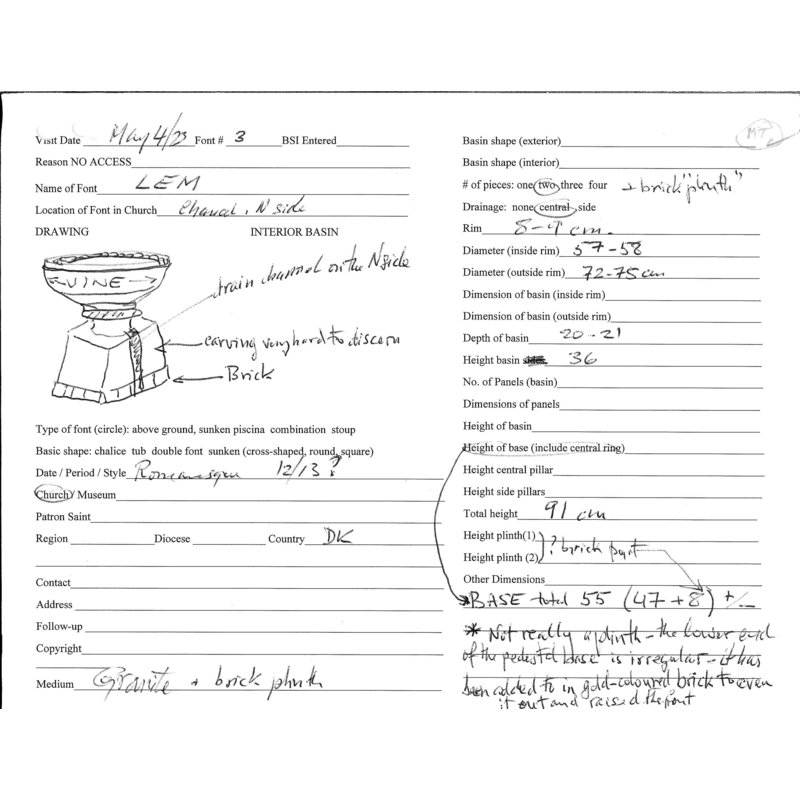 Visit Date May 4/23 Font # 3 BSI Entered
Reason NO ACCESS
Name of Font LEM
Location of Font in Church Chancel, N side
DRAWING INTERIOR BASIN
VINE
drain channel on the N side
carving very hard to discern
Brick
Type of font (circle): above ground, sunken piscina combination stoup
Basic shape: chalice tub double font sunken (cross-shaped, round, square)
Date / Period / Style Romanesque 12/13?
Church/ Museum
Patron Saint
Region Diocese Country DK
Contact
Address
Follow-up
Copyright
Medium Granite + brick plinth
MT
Basin shape (exterior)
Basin shape (interior)
# of pieces: one two three four + brick "plinth"
Drainage: none central side
Rim 8-9 cm.
Diameter (inside rim) 57-58
Diameter (outside rim) 72-75 cm
Dimension of basin (inside rim)
Dimension of basin (outside rim)
Depth of basin 20-21
Height basin 36
No. of Panels (basin)
Dimensions of panels
Height of basin
Height of base (include central ring)
Height central pillar
Height side pillars
Total height 91 cm
Height plinth(1)
? brick part
Height plinth (2)
Other Dimensions
* BASE total 55 (47+8) +/-
* Not really a plinth - the lower end
of the pedestal base is irregular - it has
been added to in gold-coloured brick to even
it out and raised the font